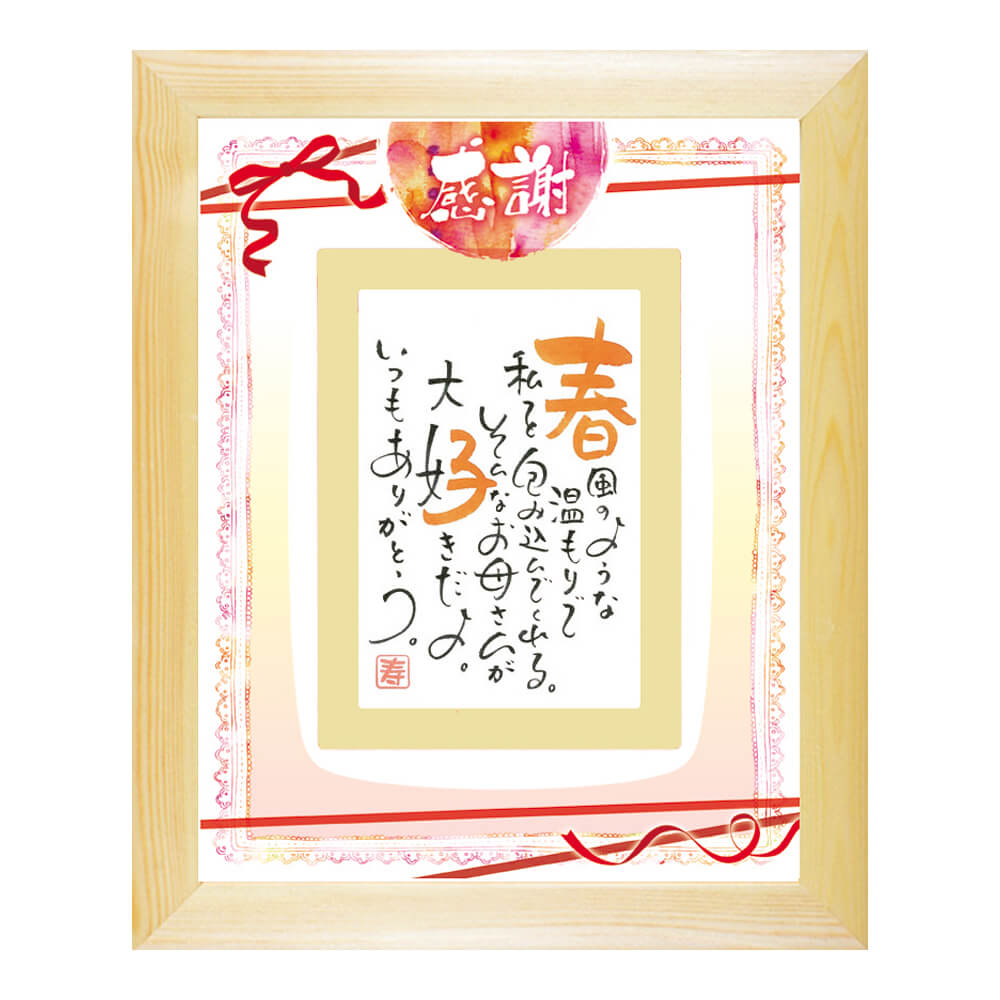 感謝
春風のような
温もりで
私を包み込んでくれる。
そんなお母さんが
大好きだよ。
いつもありがとう。
寿